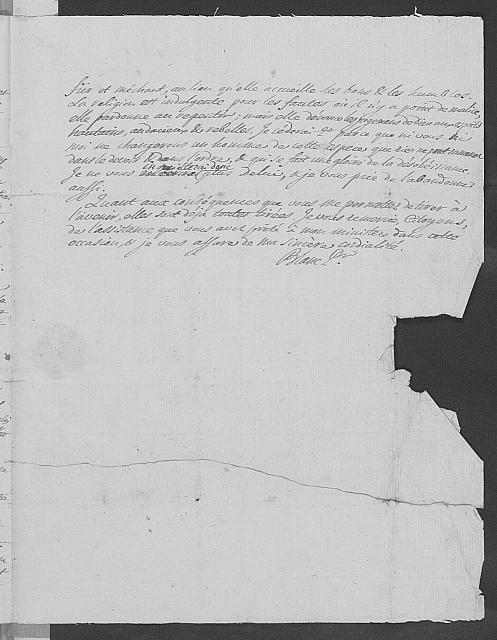 fier et méchant, au lieu qu'elle accueille les bons & les humbles.
La religion est indulgente pour les fautes où il n'y a point de malice,
elle pardonne au repentir; mais elle dénonce les jugemens de Dieu aux esprits
hautains, audacieux & rebelles. Je céderai parce que ni vous ni
moi ne changerons un homme de cette espece que rien ne peut ramener
dans le devoir & dans l'ordre, & qui se fait une gloire de la désobéissance.
Je ne vous parlerai plus de lui, & je vous prie de l'abandonner
aussi.
Quant aux conséquences que vous me permettes de tirer à
l'avenir, elles sont déjà toutes tirées. Je vous remercie, Citoyens,
de l'assistance que vous avez prêté à mon ministere dans cette
occasion, & je vous assure de ma sincère cordialité.
Blanc